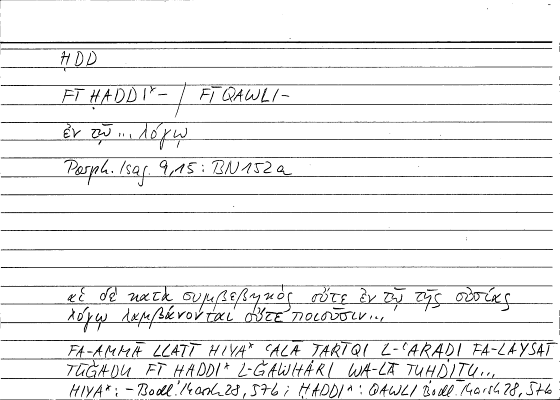 ḤDD
FĪ ḤADDI* – / FĪ QAWLI –
ἐν τῷ ... λόγῳ
Porph. Isag. 9,15 : BN 152a
αἱ δὲ κατὰ συμβεβηκὸς οὔτε ἐν τῷ τῆς οὐσίας
λόγῳ λαμβάνονται οὔτε ποιοῦσιν...
FA-AMMĀ LLATĪ HIYA* ʿALĀ ṬARĪQI L-ʿARAḌI FA-LAYSAT
TŪǦADU FĪ ḤADDI* L-ǦAWHARI WA-LĀ TUḤDIṮU...
HIYA* : – Bodl. Marsh 28, 57b ; ḤADDI* : QAWLI Bodl. Marsh 28, 57b